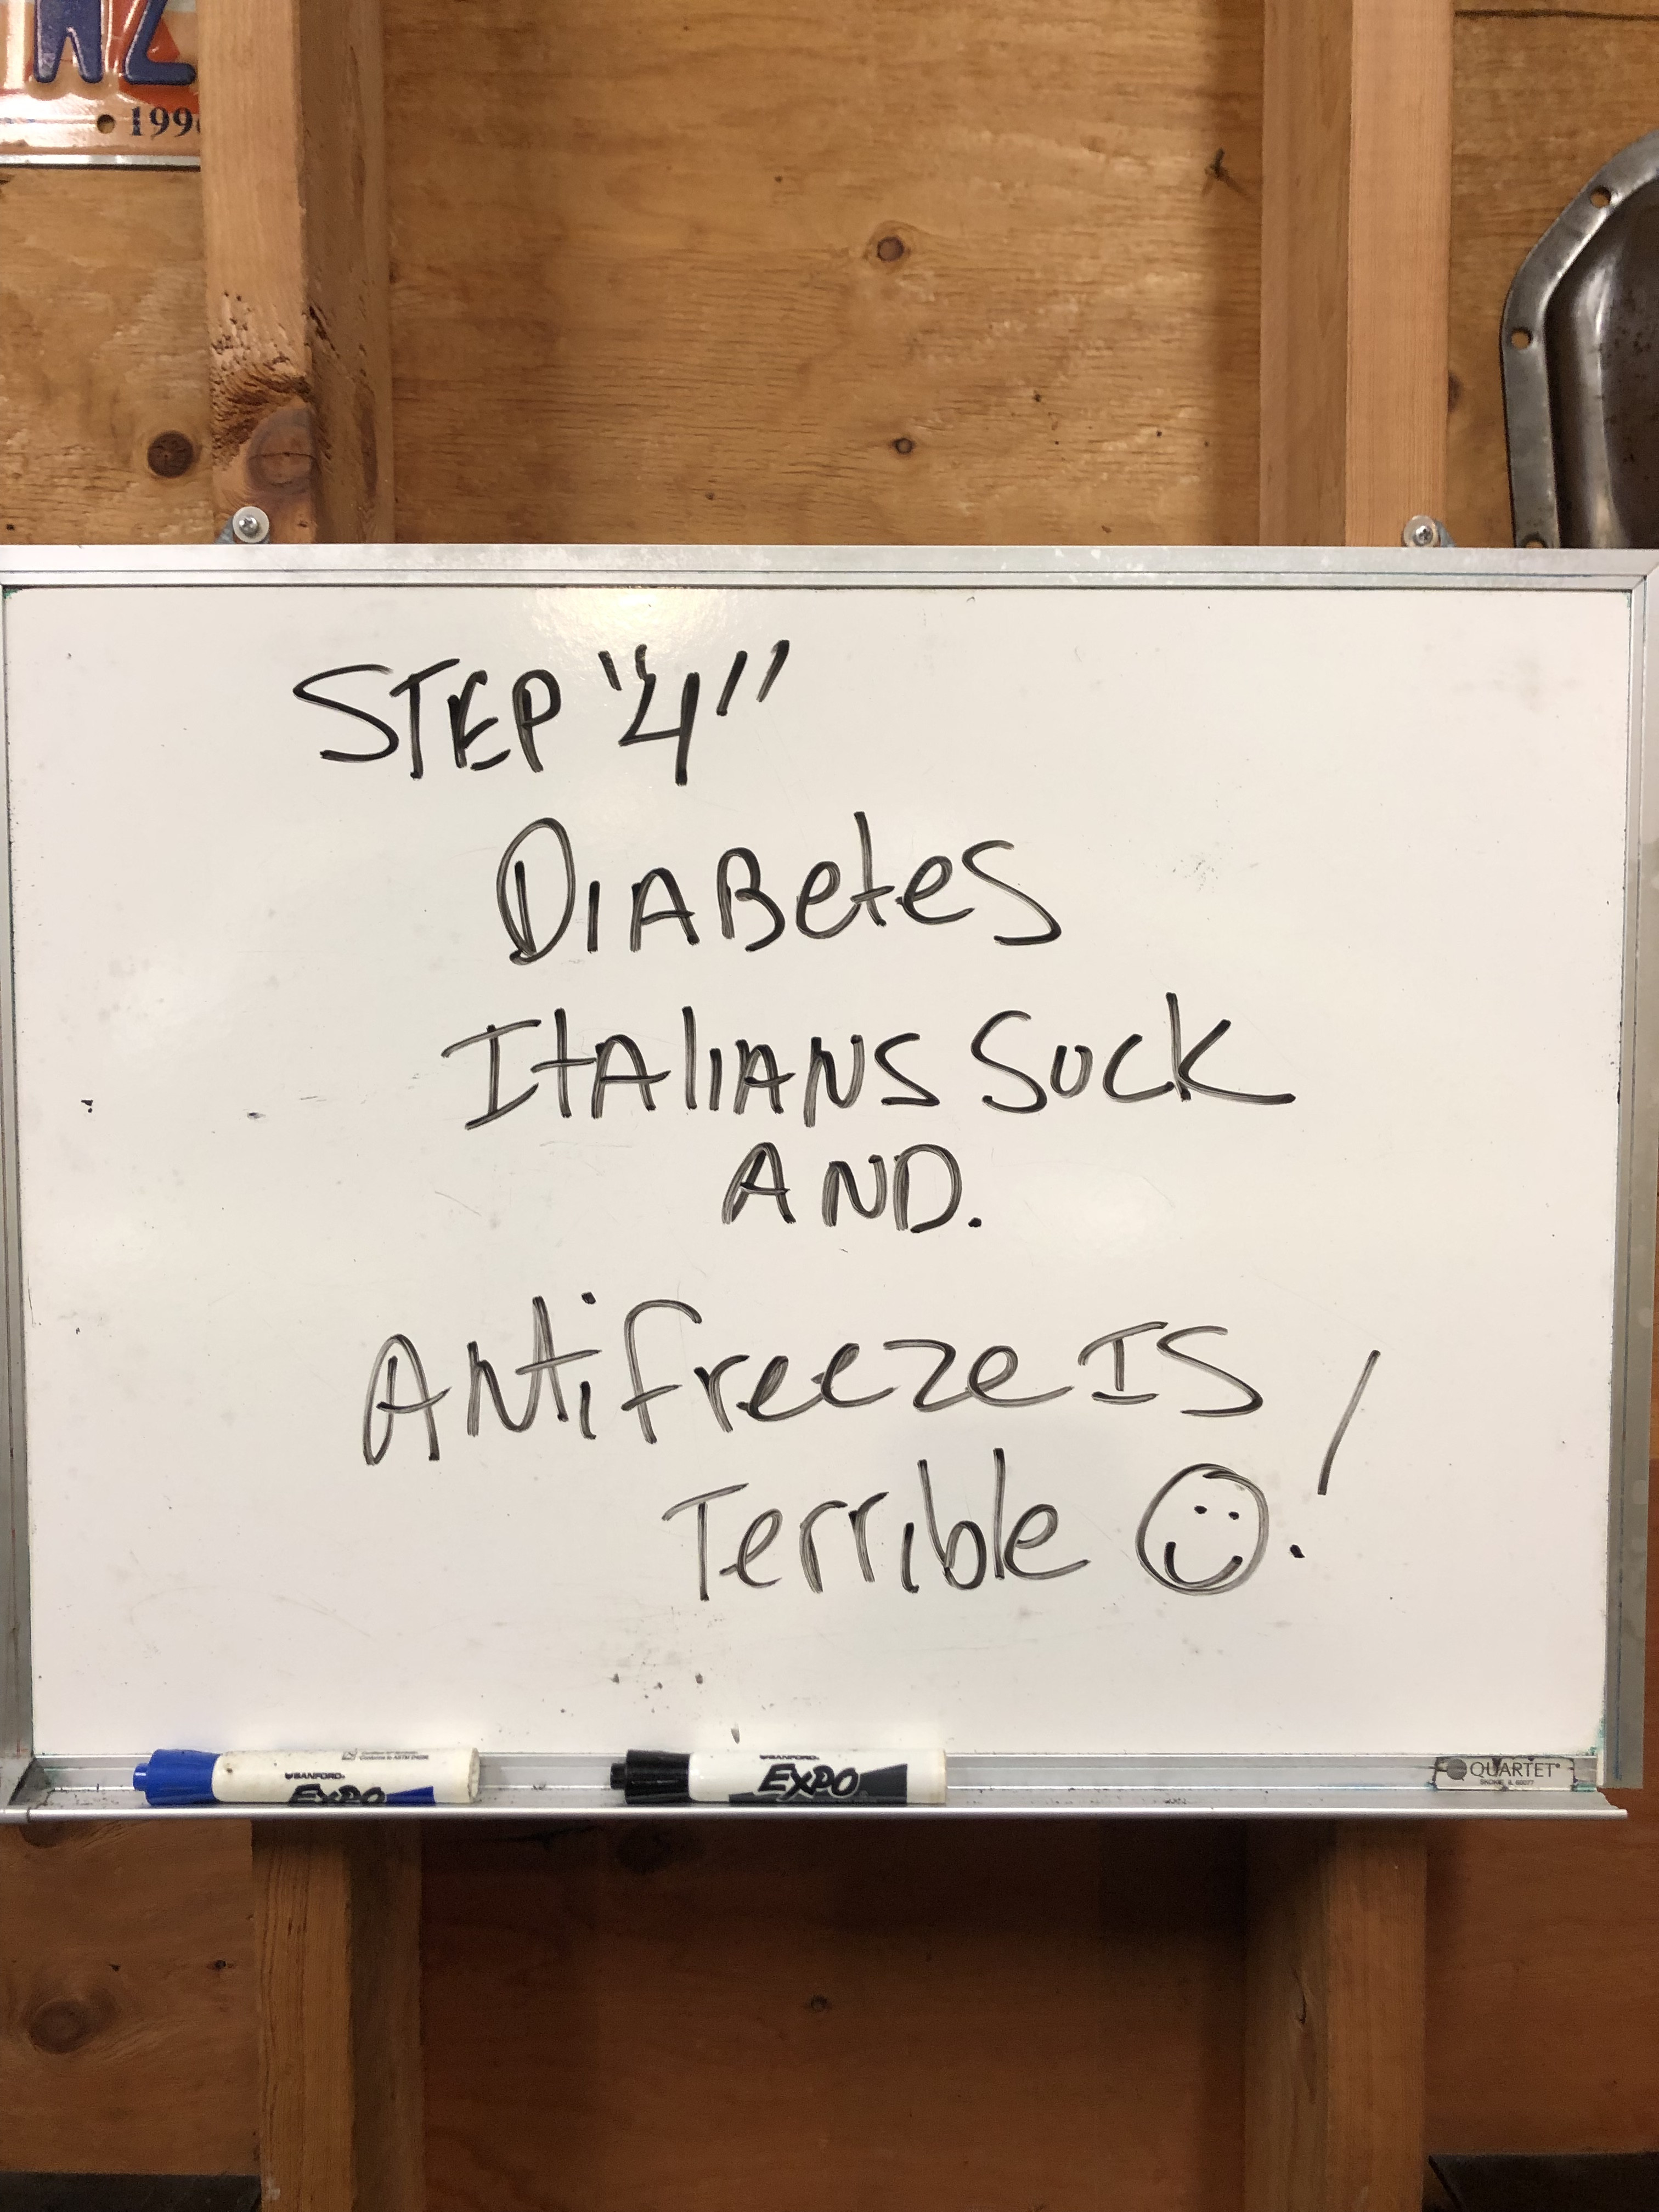 NZ
199
STEP "4"
DIABetes
ItAlIANS SUCK
AND.
ANtifreeze IS
Terrible ☺!
SANFORD
EXPO
SANFORD
EXPO
QUARTET